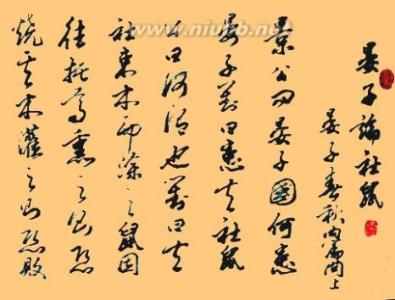 www.niubb.net
晏子論社鼠
晏子春秋内篇问上
景公问晏子國何患
晏子对曰患夫社鼠
公曰何谓也对曰夫
社束木而涂之鼠因
往托焉熏之则恐
烧其木灌之则恐败